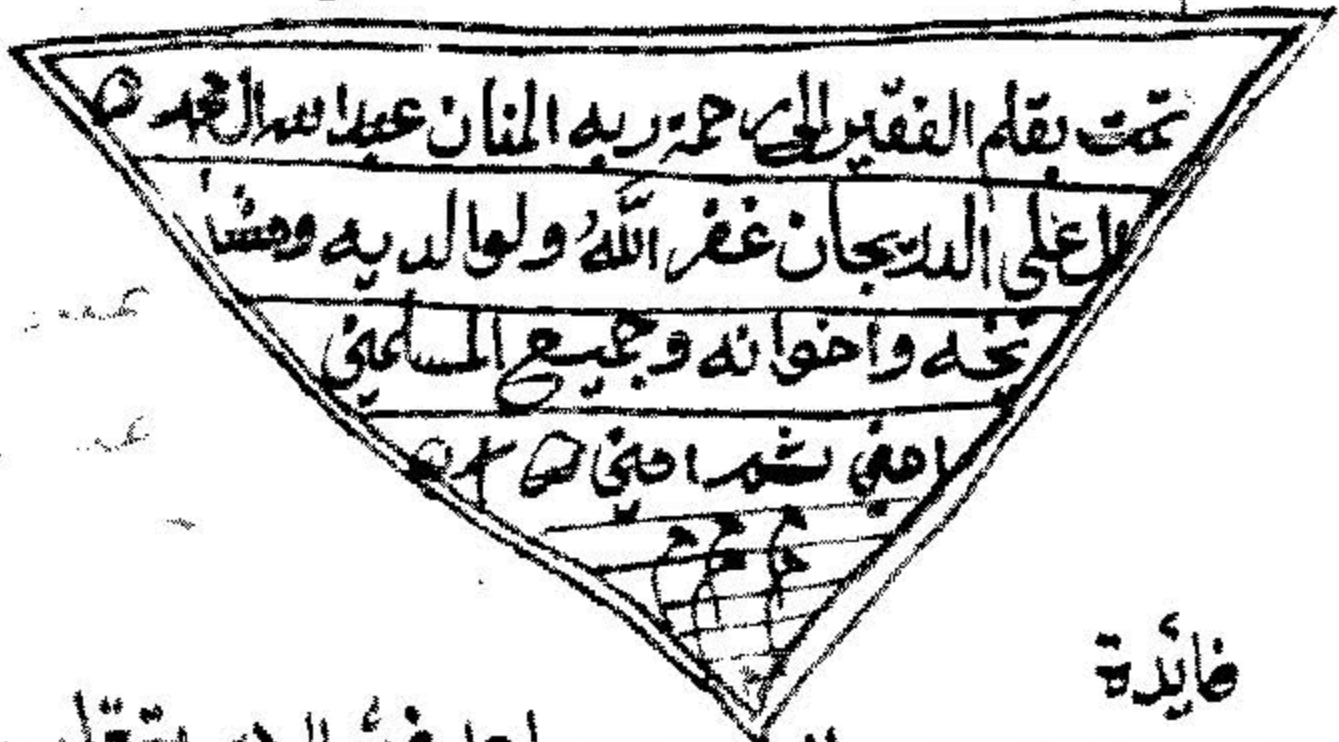 تمت بقلم الفقير إلى رحمة ربه المنان عبد الله ال محمد ٥
ال على الدريجان غفر اللهُ ولوالديه ومشا
ئخه واخوانه وجميع المسلمين
امين ثم امين
م م م
م م
فائدة